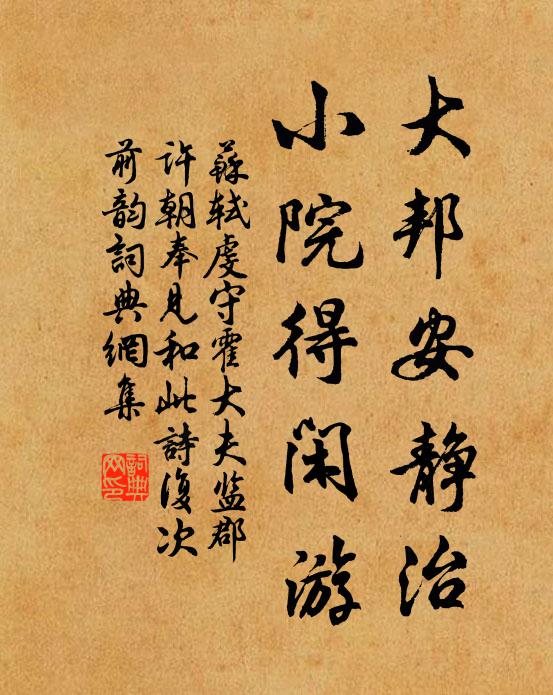 大邦安静治
小院得闲游
蘇軾虔守霍大夫監郡
許朝奉見和此詩復次
前韵詞典網集
詞典
网印